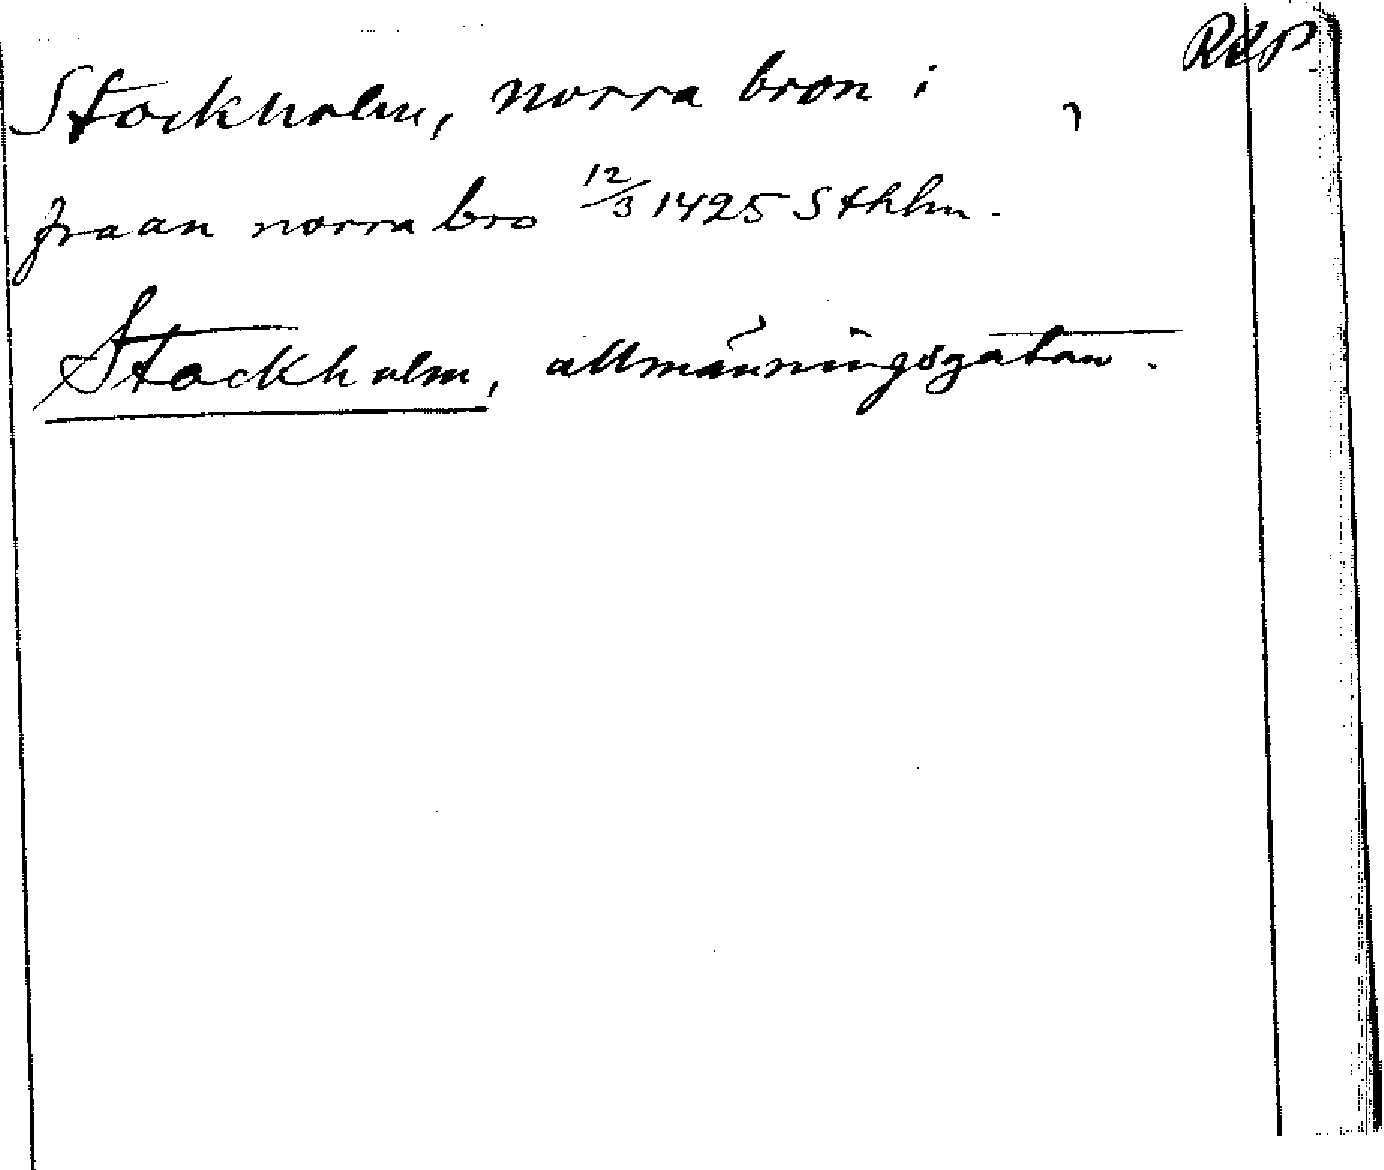 RAP
Stockholm, norra bron i
fraan norra bro 12/3 1425 Sthlm.
Stockholm, allmänningsgatan.